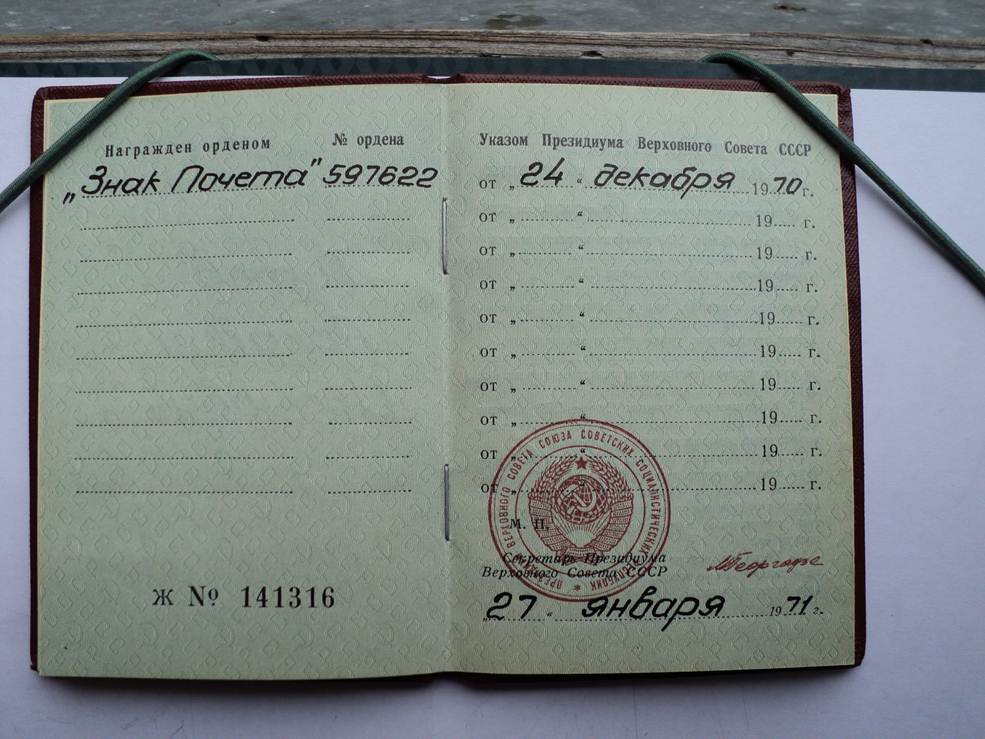 Награжден орденом № ордена
„Знак Почета" 597622
Ж № 141316
Указом Президиума Верховного Совета СССР
от „ 24 “ декабря 1970 г.
от „ “ 19 г.
от „ “ 19 г.
от „ “ 19 г.
от „ “ 19 г.
от „ “ 19 г.
от „ “ 19 г.
от „ “ 19 г.
от „ “ 19 г.
от „ “ 19 г.
ВЕРХОВНОГО СОВЕТА СОЮЗА СОВЕТСКИХ СОЦИАЛИСТИЧЕСКИХ
М. П.
Секретарь Президиума
Верховного Совета СССР
МГеоргадзе
„27 “ января 1971 г.